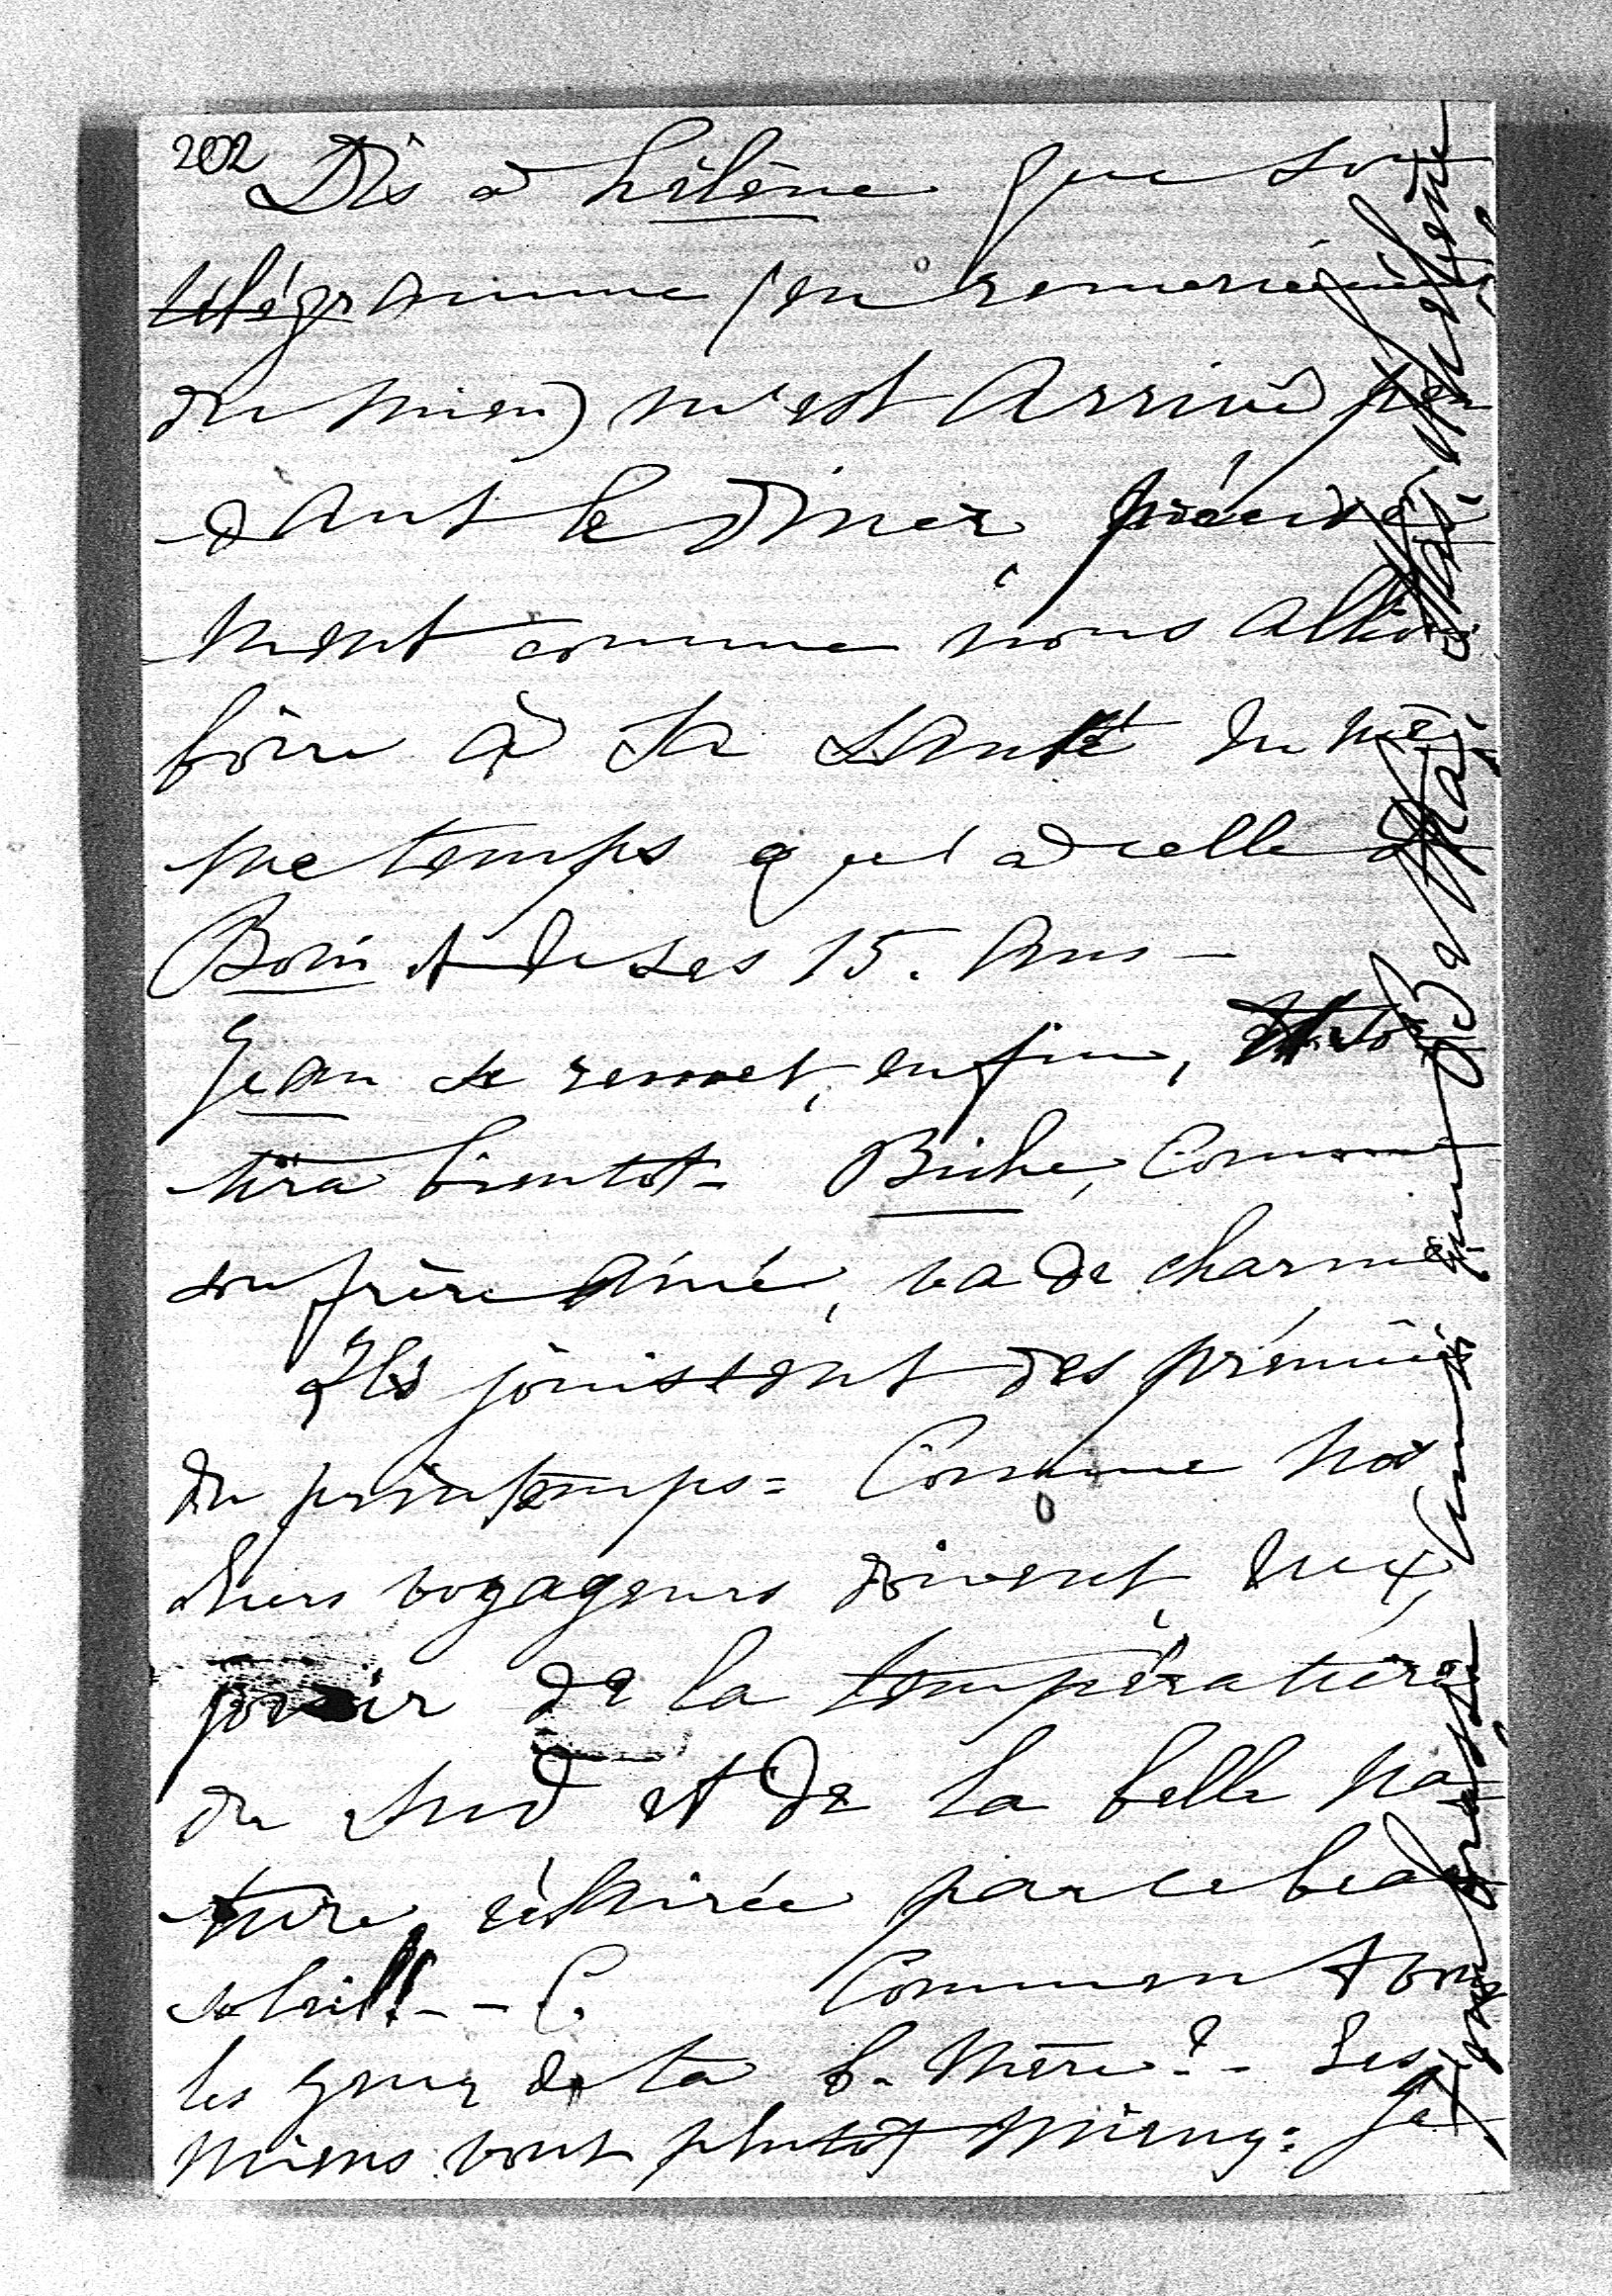 202
Dis à hélène que son
télégramme (en remerciement
du mien) m'est arrivé pen
-dant le diner, précisé
ment comme nous allions
boire à sa santé en mê-
me temps qu'à celle de
Boni et de ses 15. ans -
Jean se remet, enfin,
tira bientot - Biche, comme
son frère ainé, va de charme
Ils jouissent des prémices
du printemps = Comme nos
chers voyageurs doivent, eux,
jouir de la température
du sud et de la belle na-
ture, éclairée par ce beau
soleil!! - - C. Comment vont
les yeux de ta b. Mère? - Les
miens vont plutôt mieux: Je
t'embrasse